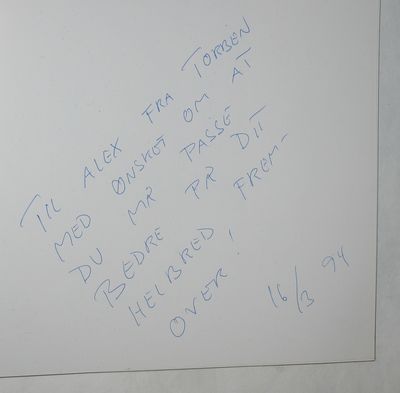 TIL ALEX FRA TORBEN
MED ØNSKET OM AT
DU MÅ PASSE
BEDRE PÅ DIT
HELBRED FREM-
OVER!
16/3 94